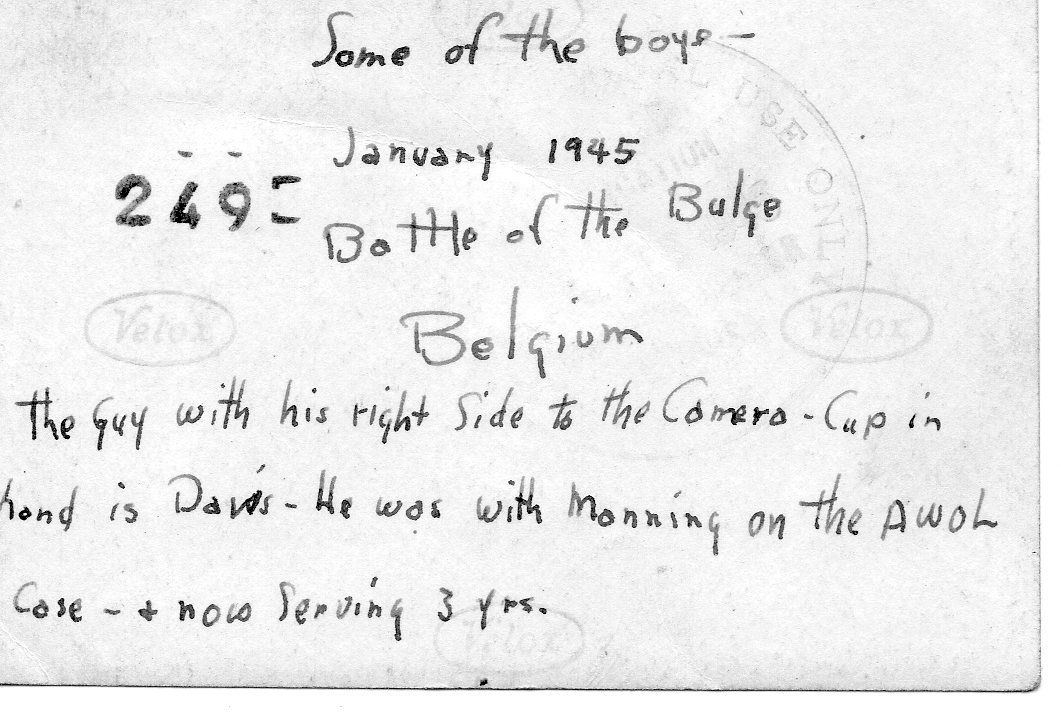 Some of the boys -
January 1945
249
Battle of the Bulge
Belgium
Velox
Velox
The Guy with his right Side to the Camera - Cup in
hand is Davis - He was with Manning on the AWOL
Case - + now Serving 3 yrs.
Velox
USE ONLY